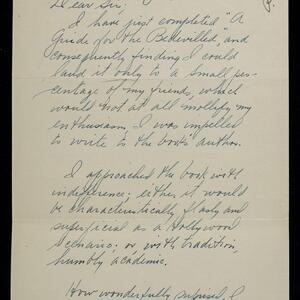 Dear Sir;
I have just completed "A
Guide for the Bedevilled," and
consequently finding I could
laud it only to a small per-
centage of my friends, which
would not at all mollify my
enthusiasm, I was impelled
to write to the book's author.
I approached the book with
indifference; either it would
be characteristically flashy and
superficial as a Hollywood
Scenario; or, with tradition
humbly academic.
How wonderfully surprised, I